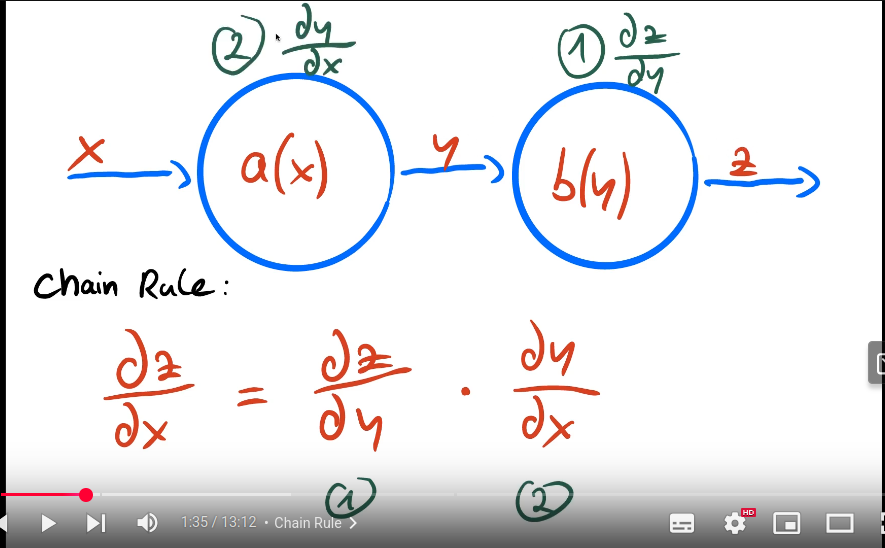 ② ∂y/∂x ① ∂z/∂y
x a(x) y b(y) z
Chain Rule:
∂z/∂x = ∂z/∂y · ∂y/∂x
① ②
1:35 / 13:12 • Chain Rule >
HD